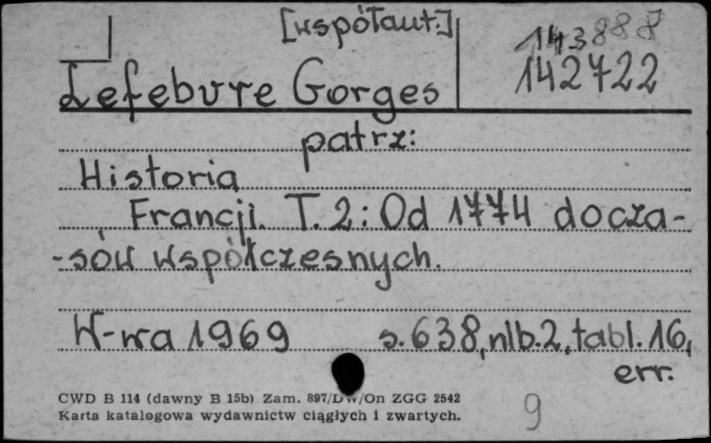 [współaut.]
143888
142722
Lefebvre Gorges
patrz:
Historia
Francji. T. 2: Od 1774 do cza-
-sów współczesnych.
W-wa 1969 s. 638, nlb. 2, tabl. 16,
err.
CWD B 114 (dawny B 15b) Zam. 897/DW/On ZGG 2542
Karta katalogowa wydawnictw ciągłych i zwartych.
9